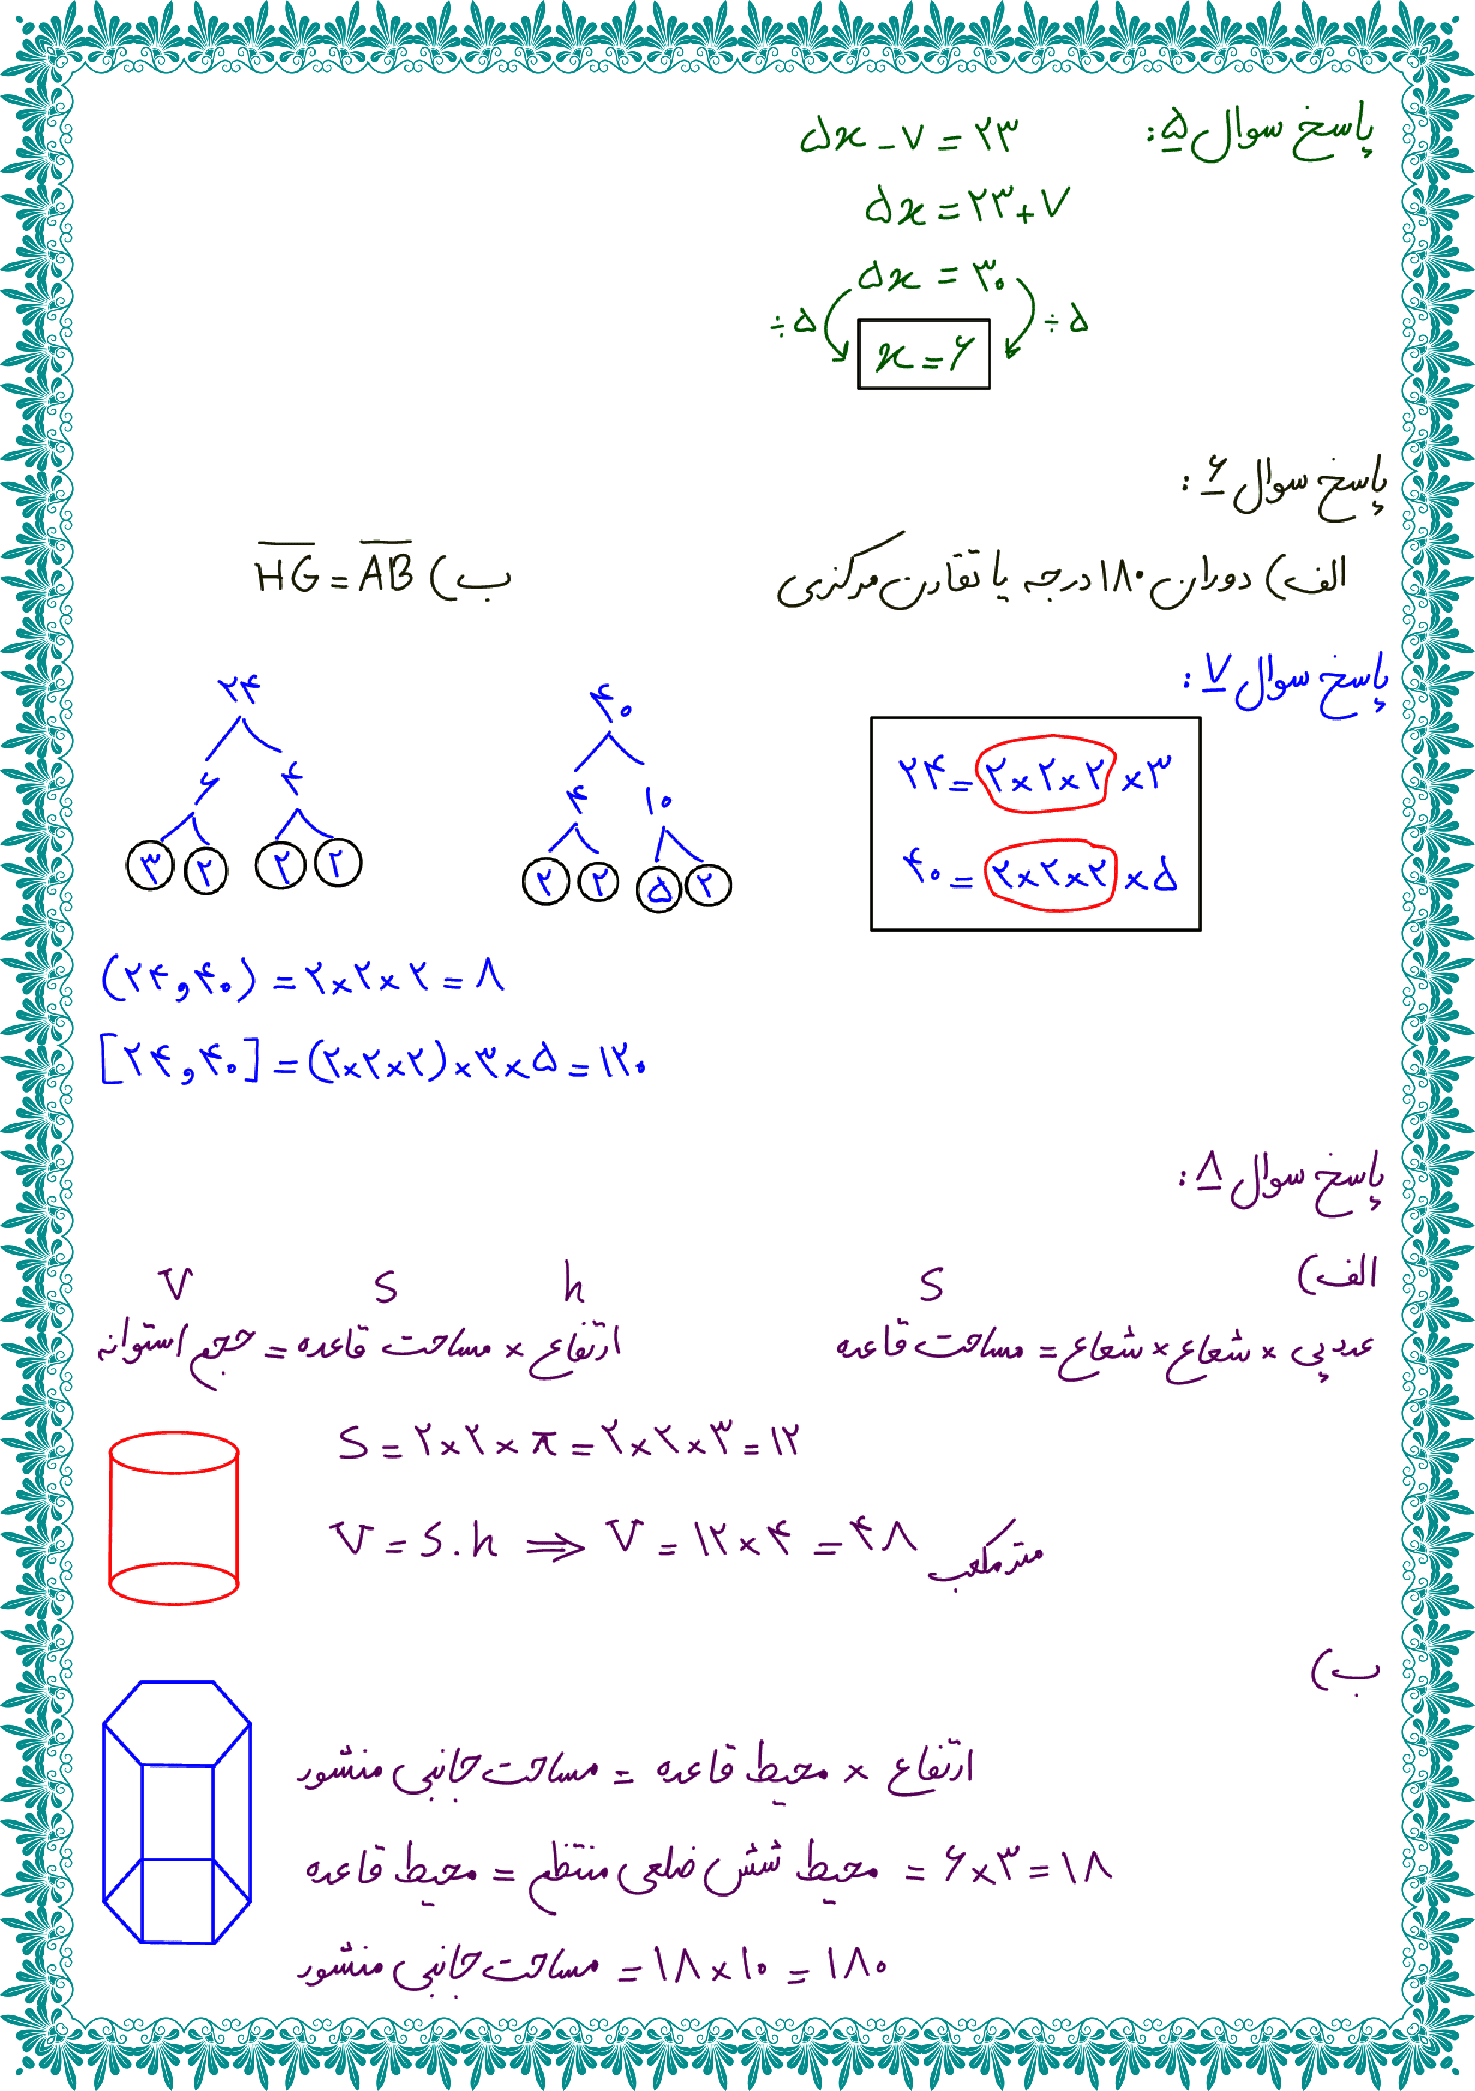 پاسخ سوال ۵:
۵x - ۷ = ۲۳
۵x = ۲۳ + ۷
۵x = ۳۰
÷۵ ÷۵
x = ۶
پاسخ سوال ۶:
الف) دوران ۱۸۰ درجه یا تقارن مرکزی
ب) HG = AB
پاسخ سوال ۷:
۲۴
۶ ۴
۳ ۲ ۲ ۲
۴۰
۴ ۱۰
۲ ۲ ۵ ۲
۲۴ = ۲×۲×۲×۳
۴۰ = ۲×۲×۲×۵
(۲۴,۴۰) = ۲×۲×۲ = ۸
[۲۴,۴۰] = (۲×۲×۲)×۳×۵ = ۱۲۰
پاسخ سوال ۸:
الف)
S
عدد پی × شعاع × شعاع = مساحت قاعده
V S h
ارتفاع × مساحت قاعده = حجم استوانه
S = ۲×۲×π = ۲×۲×۳ = ۱۲
V = S.h ⇒ V = ۱۲×۴ = ۴۸ متر مکعب
ب)
ارتفاع × محیط قاعده = مساحت جانبی منشور
محیط قاعده = محیط شش ضلعی منتظم = ۶×۳ = ۱۸
مساحت جانبی منشور = ۱۸×۱۰ = ۱۸۰